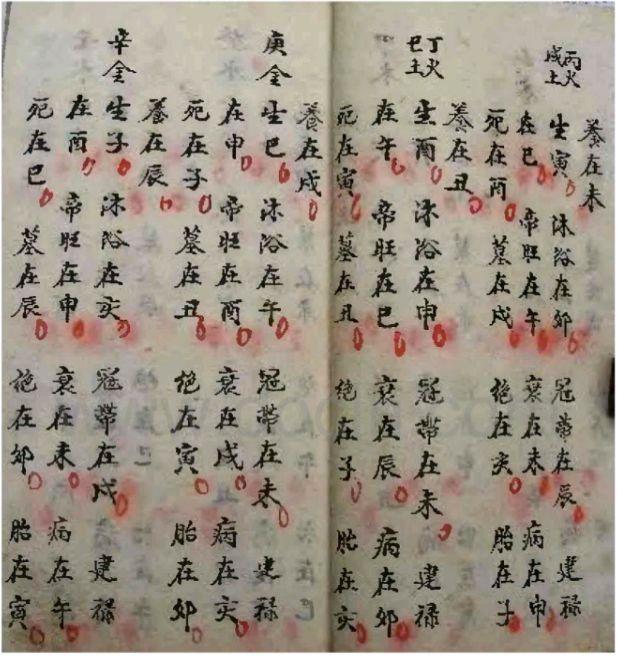 養在未
丙火
戊土
生寅 沐浴在卯 冠帶在辰 建祿
在巳 帝旺在午 衰在未 病在申
死在酉 墓在戌 絕在亥 胎在子
養在丑
丁火
巳土
生酉 沐浴在申 冠帶在未 建祿
在午 帝旺在巳 衰在辰 病在卯
死在寅 墓在丑 絕在子 胎在亥
養在戌
庚金
生巳 沐浴在午 冠帶在未 建祿
在申 帝旺在酉 衰在戌 病在亥
死在子 墓在丑 絕在寅 胎在卯
養在辰
辛金
生子 沐浴在亥 冠帶在戌 建祿
在酉 帝旺在申 衰在未 病在午
死在巳 墓在辰 絕在卯 胎在寅